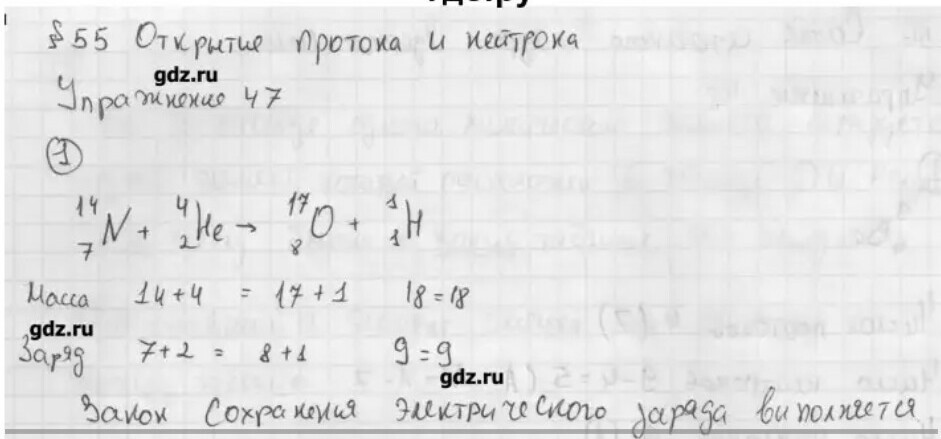 § 55 Открытие протона и нейтрона
gdz.ru
Упражнение 47
1
¹⁴₇N + ⁴₂He → ¹⁷₈O + ¹₁H
Масса 14+4 = 17+1 18=18
gdz.ru
Заряд 7+2 = 8+1 9=9
gdz.ru
Закон сохранения электрического заряда выполняется